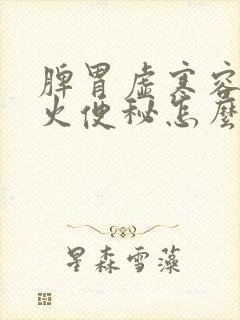 脾胃虚寒容
火便秘怎麼
星森雪藻